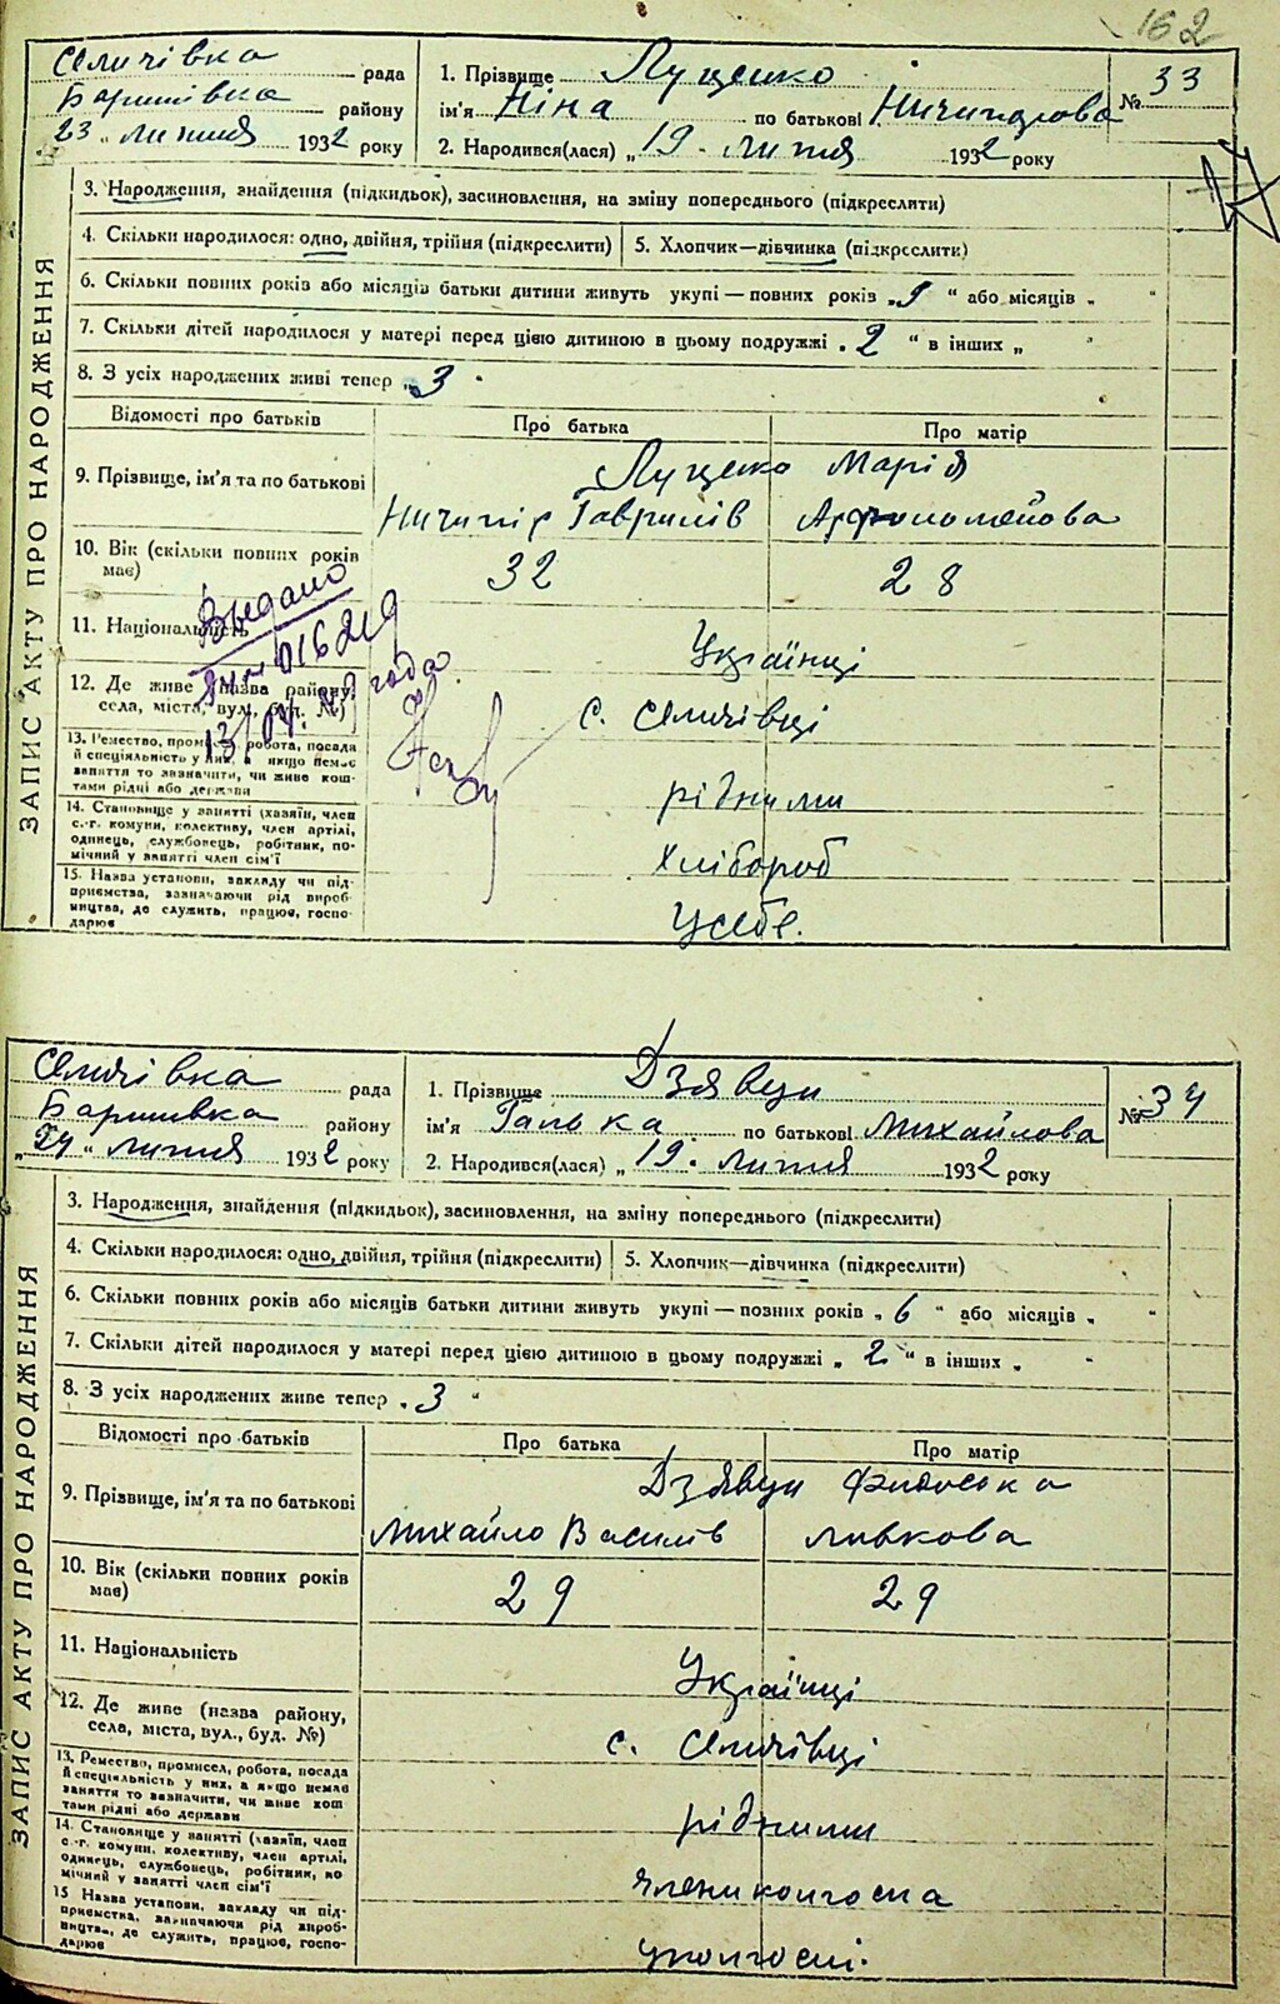 162
Селичівка рада
Баришівка району
23 „ липня 1932 року
1. Прізвище Луценко
ім'я Ніна по батькові Ничипорова
2. Народився(лася) „ 19 . липня 1932 року
№ 33
ЗАПИС АКТУ ПРО НАРОДЖЕННЯ
3. Народження, знайдення (підкидьок), засиновлення, на зміну попереднього (підкреслити)
4. Скільки народилося: одно, двійня, трійня (підкреслити) 5. Хлопчик—дівчинка (підкреслити)
6. Скільки повних років або місяців батьки дитини живуть укупі — повних років „ 9 “ або місяців „ “
7. Скільки дітей народилося у матері перед цією дитиною в цьому подружжі „ 2 “ в інших „ “
8. З усіх народжених живі тепер „ 3 “
Відомості про батьків Про батька Про матір
9. Прізвище, ім'я та по батькові
Луценко Марія
Ничипір Гаврилів
10. Вік (скільки повних років має) 32 28
11. Національність Українці
12. Де живе (назва району, села, міста, вул., буд. №) с. Селичівці
Выдано
016219
года
13. Ремество, промисел, робота, посада
й спеціяльність у них, а якщо немає
заняття то зазначити, чи живе кош-
тами рідні або держави
рідними
14. Становище у занятті (хазяїн, член
с.-г. комуни, колективу, член артілі,
одинець, службовець, робітник, по-
мічний у занятті член сім'ї
хлібороб
15. Назва установи, закладу чи під-
приємства, зазначаючи рід вироб-
ництва, де служить, працює, госпо-
дарює
Усебе.
Селичівка рада
Баришивка району
„ 24 “ липня 1932 року
1. Прізвище Дзявун
ім'я Галька по батькові Михайлова
2. Народився(лася) „ 19 . липня 1932 року
№ 34
ЗАПИС АКТУ ПРО НАРОДЖЕННЯ
3. Народження, знайдення (підкидьок), засиновлення, на зміну попереднього (підкреслити)
4. Скільки народилося: одно, двійня, трійня (підкреслити) 5. Хлопчик—дівчинка (підкреслити)
6. Скільки повних років або місяців батьки дитини живуть укупі — повних років „ 6 “ або місяців „ “
7. Скільки дітей народилося у матері перед цією дитиною в цьому подружжі „ 2 “ в інших „ “
8. З усіх народжених живе тепер „ 3 “
Відомості про батьків Про батька Про матір
9. Прізвище, ім'я та по батькові
Дзявун Федоська
Михайло Василів Ливкова
10. Вік (скільки повних років має) 29 29
11. Національність Українці
12. Де живе (назва району, села, міста, вул., буд. №) с. Селичівці
13. Ремество, промисел, робота, посада
й спеціяльність у них, а якщо немає
заняття то зазначити, чи живе кош
тами рідні або держави
рідними
14. Становище у занятті (хазяїн, член
с.-г. комуни, колективу, член артілі,
одинець, службовець, робітник, по
мічний у занятті член сім'ї
члени колгоспа
15 Назва установи, закладу чи під-
приємства, зазначаючи рід вироб-
ництва, де служить, працює, госпо-
дарює
уколгоспі.